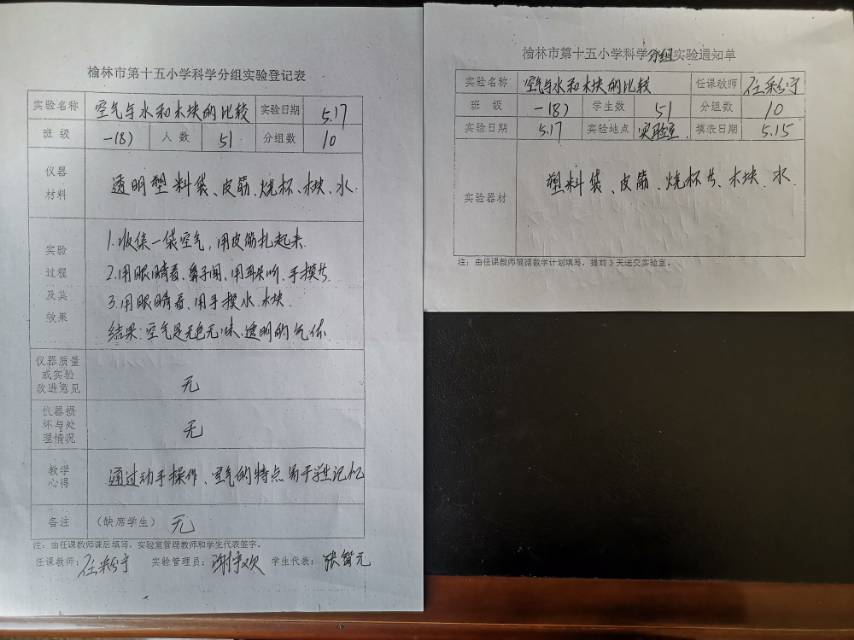 榆林市第十五小学科学分组实验登记表
实验名称 空气与水和木块的比较 实验日期 5.17
班 级 一(8) 人 数 51 分组数 10
仪器
材料
透明塑料袋、皮筋、烧杯、木块、水
实验
过程
及其
效果
1.收集一袋空气,用皮筋扎起来.
2.用眼睛看、鼻子闻、用耳朵听、手摸等
3.用眼睛看、用手摸水、木块.
结果:空气是无色无味、透明的气体
仪器质量
或实验
改进意见
无
仪器损
坏与处
理情况
无
教学
心得
通过动手操作、空气的特点易于学生记忆
备注 (缺席学生) 无
注:由任课教师课后填写,实验室管理教师和学生代表签字。
任课教师: 实验管理员: 学生代表:张智元
榆林市第十五小学科学分组实验通知单
实验名称 空气与水和木块的比较 任课教师
班 级 一(8) 学生数 51 分组数 10
实验日期 5.17 实验地点 实验室 填表日期 5.15
实验器材
塑料袋、皮筋、烧杯等、木块、水.
注:由任课教师根据教学计划填写,提前3天送交实验室。